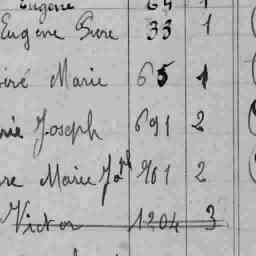 Eugène 64 1
Eugène Sivre 33 1
Marie 65 1
Joseph 691 2
Marie Jos.ph 761 2
Victor 1204 3